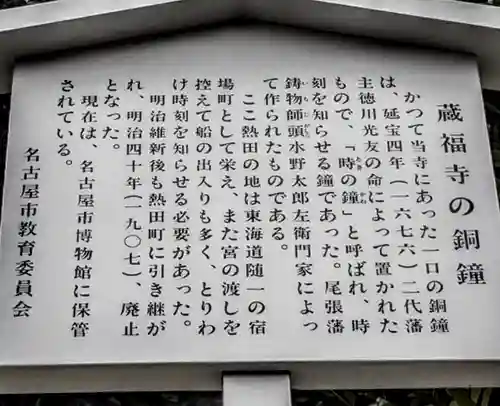 蔵福寺の銅鐘
かつて当寺にあった一口の銅鐘
は、延宝四年（一六七六）二代藩
主徳川光友の命によって置かれた
もので、「時の鐘」と呼ばれ、時
刻を知らせる鐘であった。尾張藩
鋳物師頭水野太郎左衛門家によっ
て作られたものである。
ここ熱田の地は東海道随一の宿
場町として栄え、また宮の渡しを
控えて船の出入りも多く、とりわ
け時刻を知らせる必要があった。
明治維新後も熱田町に引き継が
れ、明治四十年（一九〇七）、廃止
となった。
現在は、名古屋市博物館に保管
されている。
名古屋市教育委員会